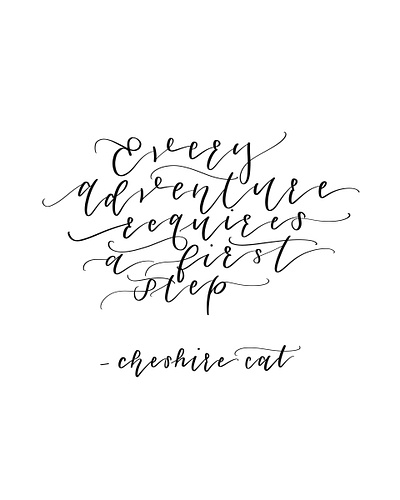 Every
adventure
requires
a first
step
- cheshire cat